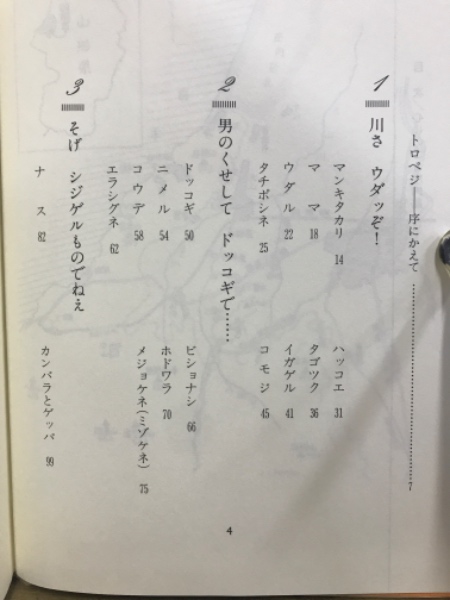 トロペジ――序にかえて……………………7
1 川さ ウダッぞ!
マンキタカリ 14
ママ 18
ウダル 22
タチポシネ 25
ハッコエ 31
タゴツク 36
イガゲル 41
コモジ 45
2 男のくせして ドッコギで……
ドッコギ 50
ニメル 54
コウデ 58
エラシグネ 62
ビショナシ 66
ホドワラ 70
メジョケネ(ミゾケネ) 75
3 そげ シジゲルものでねぇ
ナス 82
カンバラとゲッパ 99
4